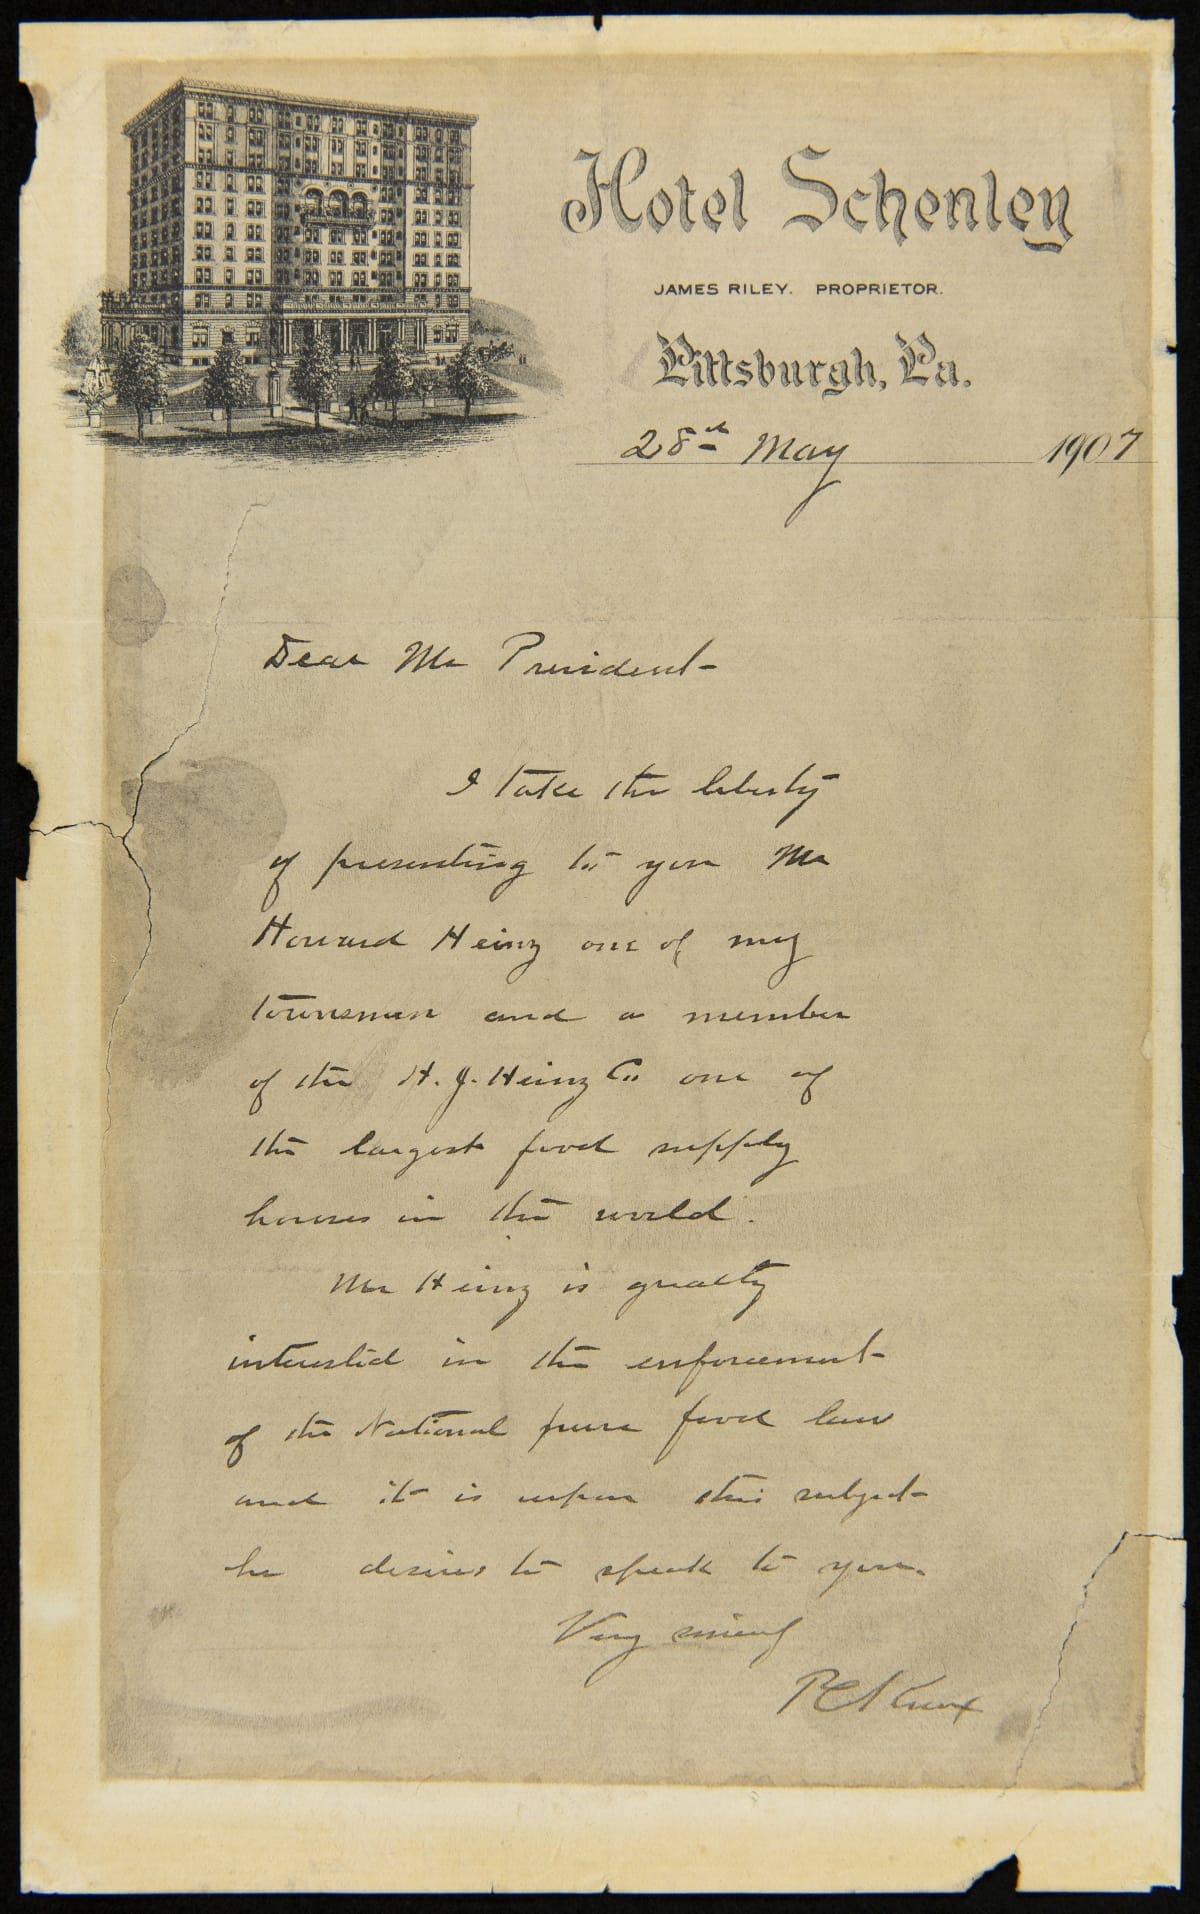 Hotel Schenley
JAMES RILEY. PROPRIETOR.
Pittsburgh, Pa.
28th May 1907
Dear Mr President-
I take the liberty
of presenting to you Mr
Howard Heinz one of my
townsmen and a member
of the H. J. Heinz Co one of
the largest food supply
houses in the world.
Mr Heinz is greatly
interested in the enforcement
of the National pure food law
and it is upon this subject
he desires to speak to you.
Very sincerely
P C Knox